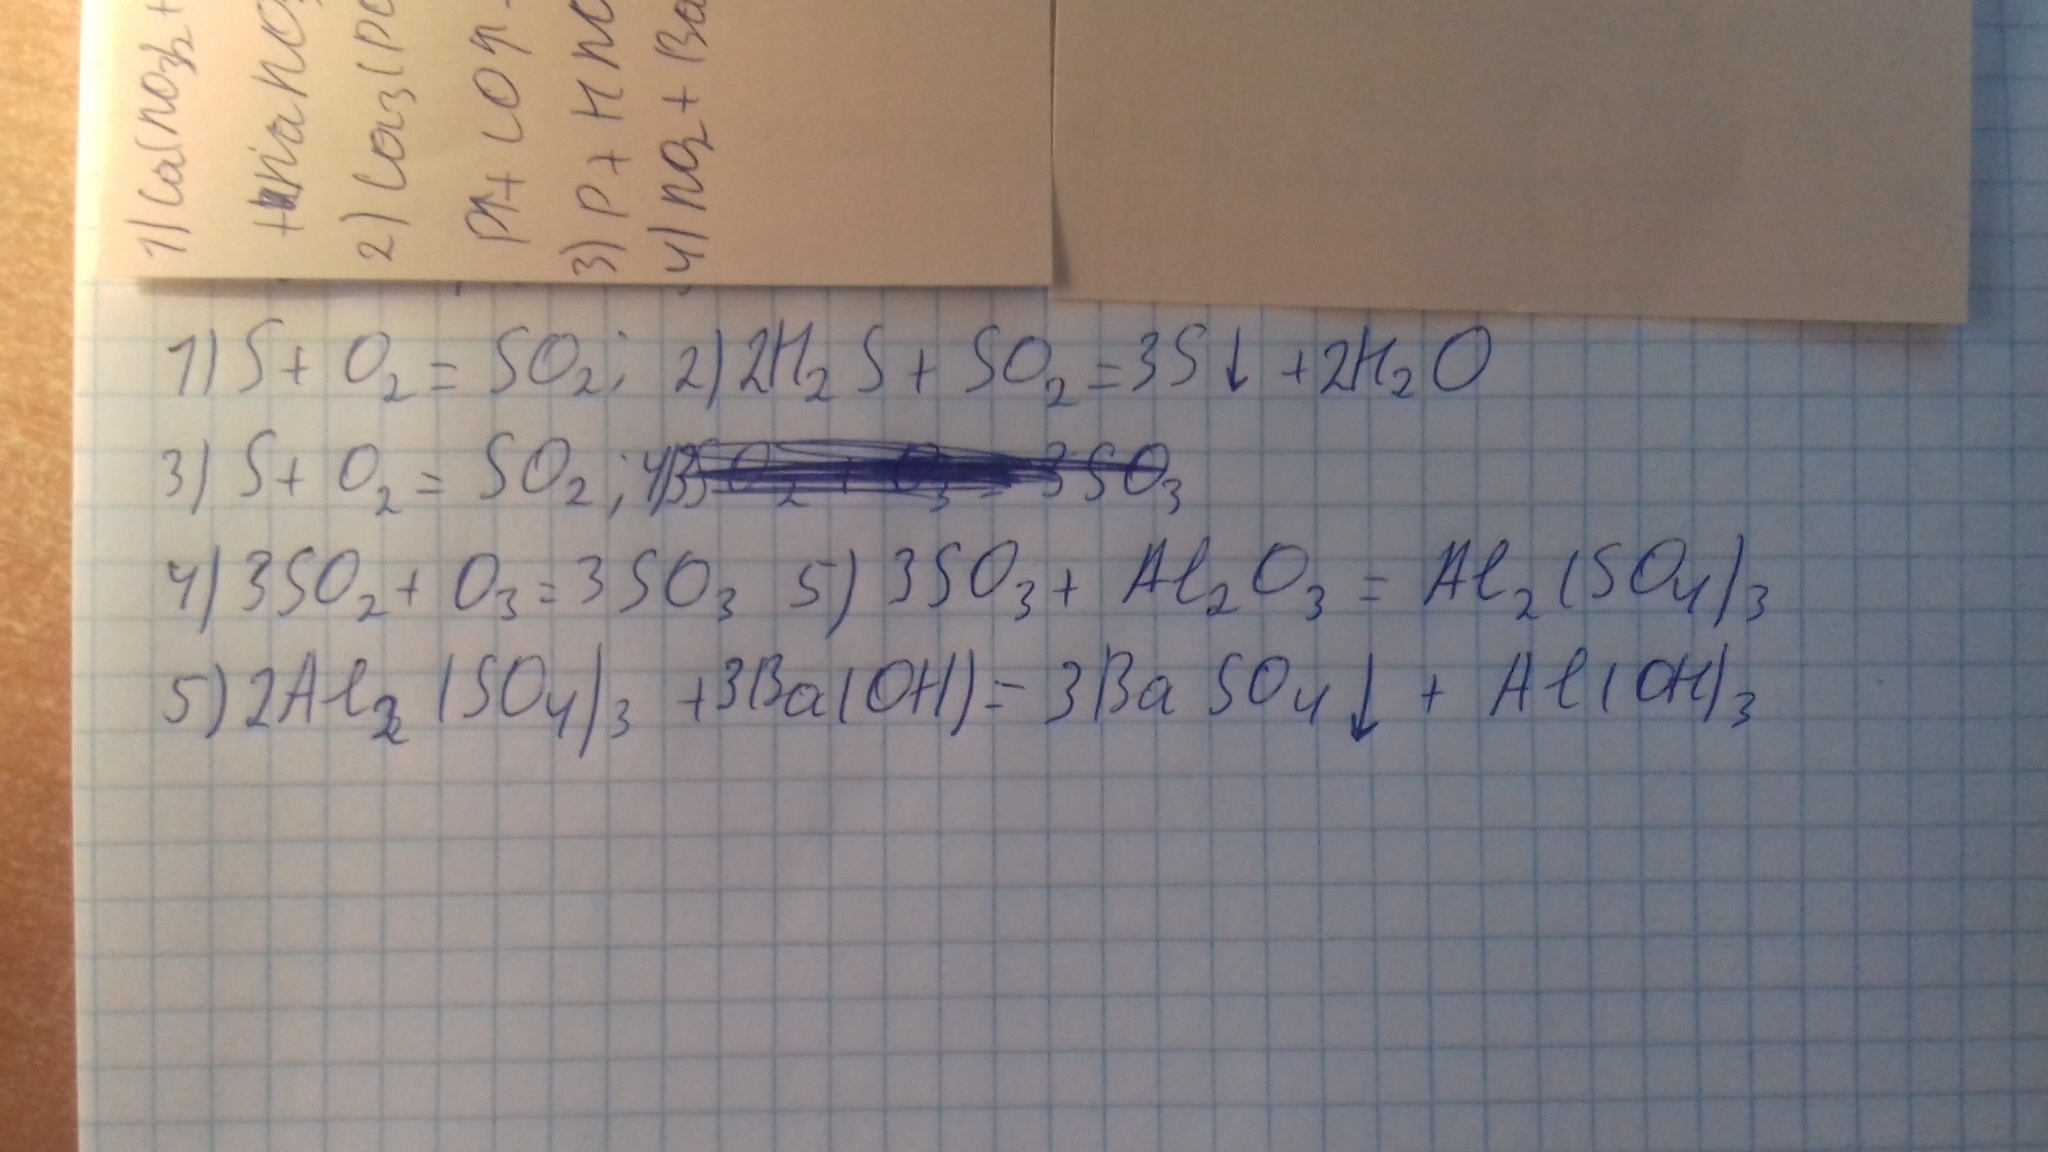 1) Ca(NO3)2 +
+ NaNO3
2) Ca3(PO
P↑ + CO↑
3) P + HNO
4) NO2 + Ba
1) S + O2 = SO2; 2) 2H2S + SO2 = 3S↓ + 2H2O
3) S + O2 = SO2; 4) 3SO2 + O3 = 3SO3
4) 3SO2 + O3 = 3SO3 5) 3SO3 + Al2O3 = Al2(SO4)3
5) 2Al2(SO4)3 + 3Ba(OH) = 3BaSO4↓ + Al(OH)3